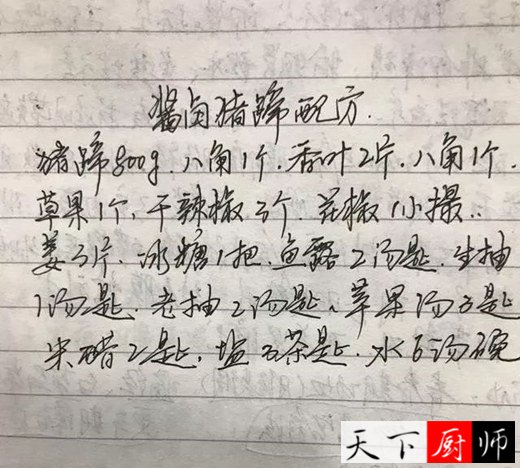 酱卤猪蹄配方.
猪蹄800g.八角1个.香叶2片.八角1个.
草果1个,干辣椒3个.花椒1小撮..
姜3片.冰糖1把.鱼露2汤匙.生抽
1汤匙.老抽2汤匙、苹果汤3匙
米醋2匙.盐3茶匙.水6汤碗
天下厨师